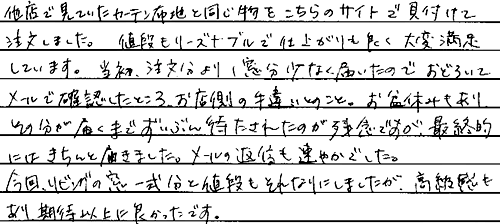 他店で見ていたカーテン布地と同じ物をこちらのサイトで見付けて
注文しました。 値段もリーズナブルで仕上がりも良く 大変満足
しています。 当初、注文分より1窓分少なく届いたのでおどろいて
メールで確認したところ、お店側の手違いとのこと。 お盆休みもあり
その分が届くまでずいぶん待たされたのが残念ですが、最終的
にはきちんと届きました。 メールの返信も速やかでした。
今回、リビングの窓一式分と値段もそれなりにしましたが、高級感も
あり、期待以上に良かったです。